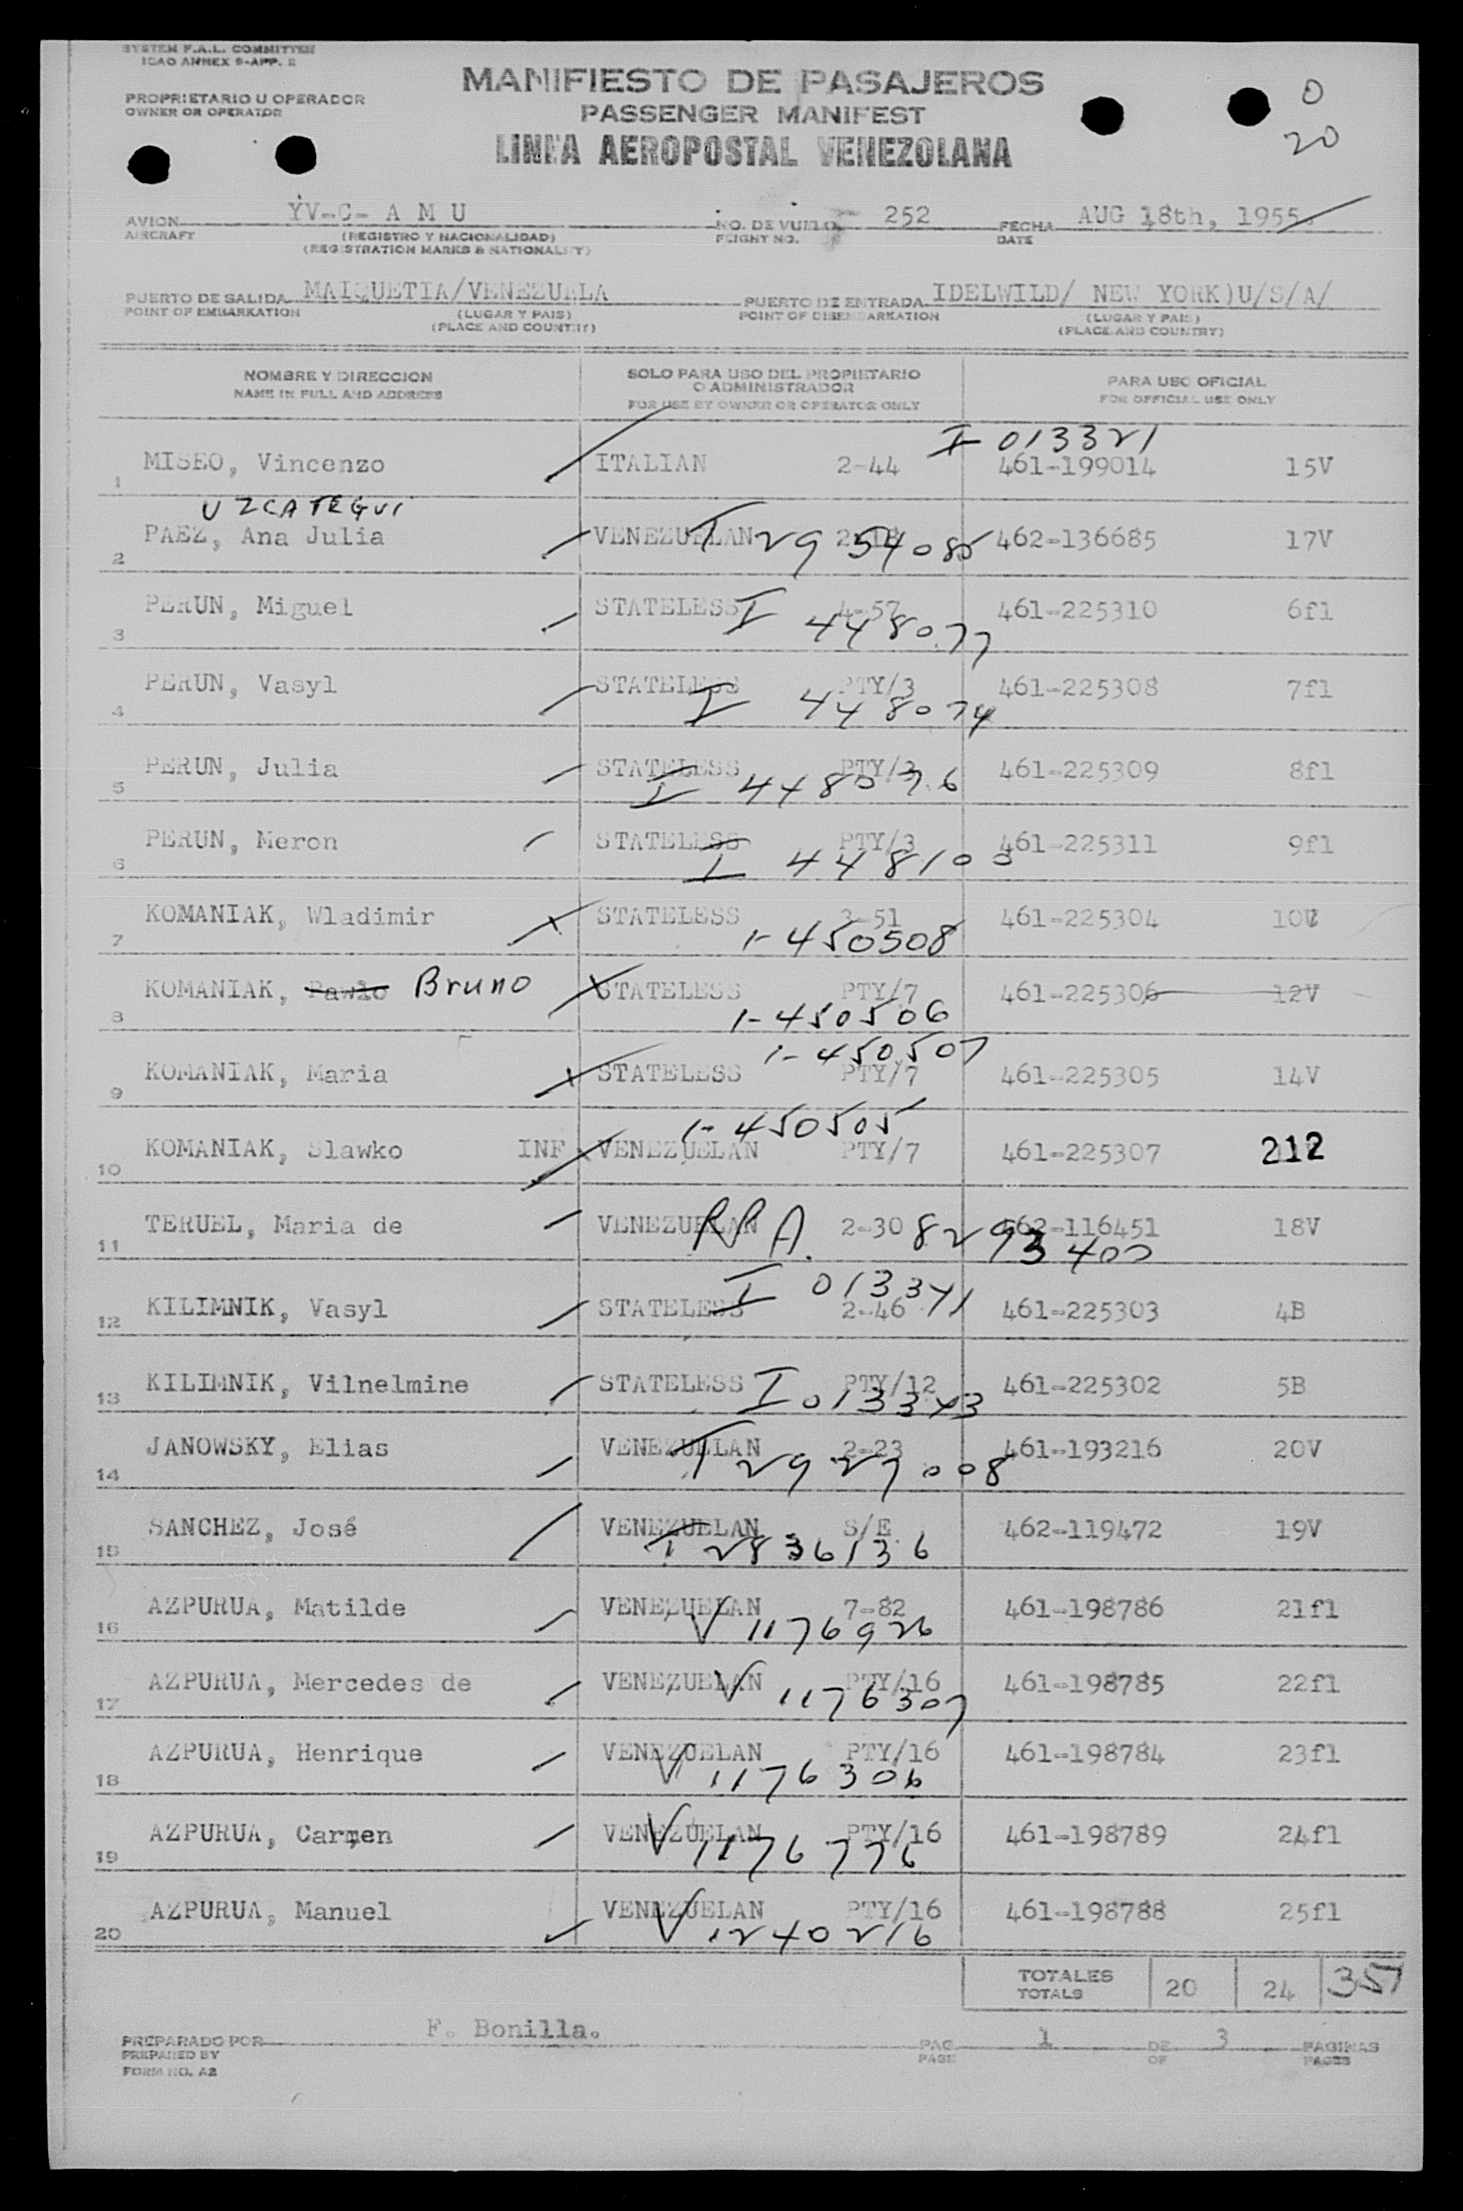 SYSTEM F.A.L. COMMITTEE
ICAO ANNEX 9-APP. 2
MANIFIESTO DE PASAJEROS
PASSENGER MANIFEST
LINEA AEROPOSTAL VENEZOLANA
PROPRIETARIO U OPERADOR
OWNER OR OPERATOR
0
20
AVION YV-C- A M U NO. DE VUELO 252 FECHA AUG 18th, 1955.
AIRCRAFT (REGISTRO Y NACIONALIDAD) FLIGHT NO. DATE
(REGISTRATION MARKS & NATIONALITY)
PUERTO DE SALIDA MAIQUETIA/VENEZUELA PUERTO DE ENTRADA IDELWILD/ NEW YORK)U/S/A/
POINT OF EMBARKATION (LUGAR Y PAIS) POINT OF DISEMBARKATION (LUGAR Y PAIS)
(PLACE AND COUNTRY) (PLACE AND COUNTRY)
NOMBRE Y DIRECCION SOLO PARA USO DEL PROPIETARIO O ADMINISTRADOR PARA USO OFICIAL
NAME IN FULL AND ADDRESS FOR USE BY OWNER OR OPERATOR ONLY FOR OFFICIAL USE ONLY
I 013321
1 MISEO, Vincenzo ITALIAN 2-44 461-199014 15V
UZCATEGUI
2 PAEZ, Ana Julia VENEZUELAN 462-136685 17V
T 2954085
3 PERUN, Miguel STATELESS 4-57 461-225310 6fl
I 448077
4 PERUN, Vasyl STATELESS PTY/3 461-225308 7fl
I 448074
5 PERUN, Julia STATELESS PTY/3 461-225309 8fl
I 448076
6 PERUN, Meron STATELESS PTY/3 461-225311 9fl
I 448100
7 KOMANIAK, Wladimir STATELESS 3-51 461-225304
1-450508
8 KOMANIAK, Pawlo Bruno STATELESS PTY/7 461-225306 12V
1-450506
1-450507
9 KOMANIAK, Maria STATELESS PTY/7 461-225305 14V
1-450505
10 KOMANIAK, Slawko INF VENEZUELAN PTY/7 461-225307 212
11 TERUEL, Maria de VENEZUELAN 2-30 462-116451 18V
RPA. 8293400
I 013341
12 KILIMNIK, Vasyl STATELESS 2-46 461-225303 4B
13 KILIMNIK, Vilnelmine STATELESS PTY/12 461-225302 5B
I 013343
14 JANOWSKY, Elias VENEZUELAN 2-23 461-193216 20V
T 2927008
15 SANCHEZ, José VENEZUELAN S/E 462-119472 19V
T 2836136
16 AZPURUA, Matilde VENEZUELAN 7-82 461-198786 21fl
V 1176926
17 AZPURUA, Mercedes de VENEZUELAN PTY/16 461-198785 22fl
V 1176307
18 AZPURUA, Henrique VENEZUELAN PTY/16 461-198784 23fl
V 1176306
19 AZPURUA, Carmen VENEZUELAN PTY/16 461-198789 24fl
V 1176776
20 AZPURUA, Manuel VENEZUELAN PTY/16 461-198788 25fl
V 1240216
TOTALES 20 24 357
TOTALS
PREPARADO POR F. Bonilla. PAG. 1 DE 3 PAGINAS
PREPARED BY PAGE OF PAGES
FORM NO. A2